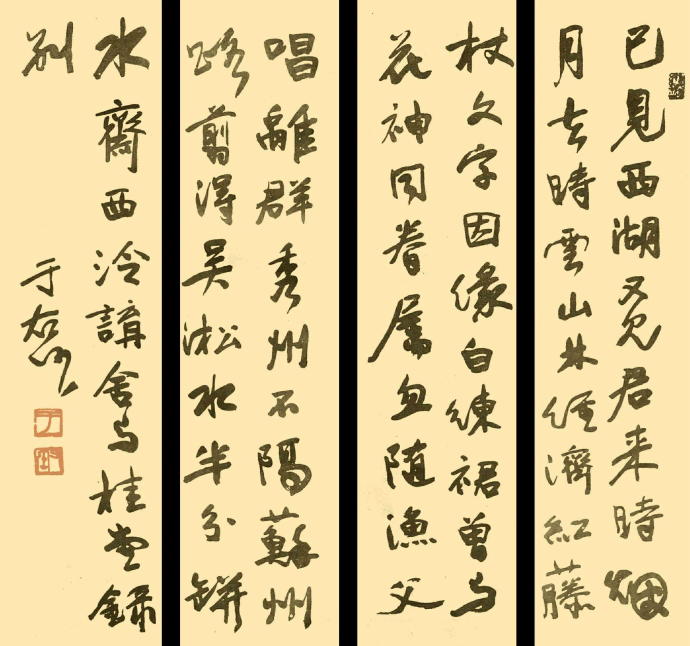 已見西湖又見君来時烟
月去時雲山林經濟紅藤
杖文字因緣白練裙曾与
花神同眷屬忽随漁父
唱離群秀州不隔蘇州
路翦得吴淞水半分缾
水齋西泠講舍与桂堂錄
别
于右任